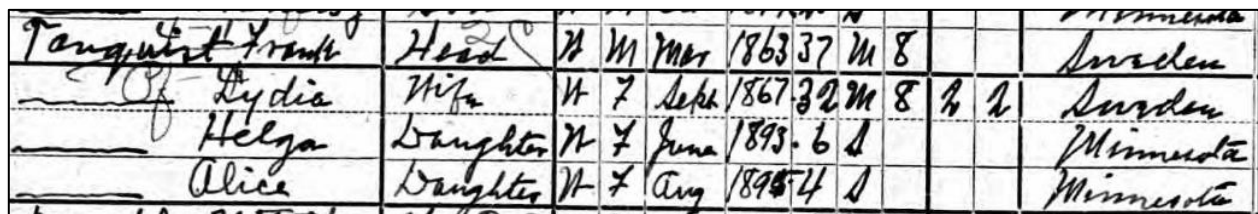 Minnesota
Tanquist Frank Head W M Mar 1863 37 M 8 Sweden
Lydia Wife W F Sept 1867 32 M 8 2 2 Sweden
Helga Daughter W F June 1893 6 S Minnesota
Alice Daughter W F Aug 1895 4 S Minnesota